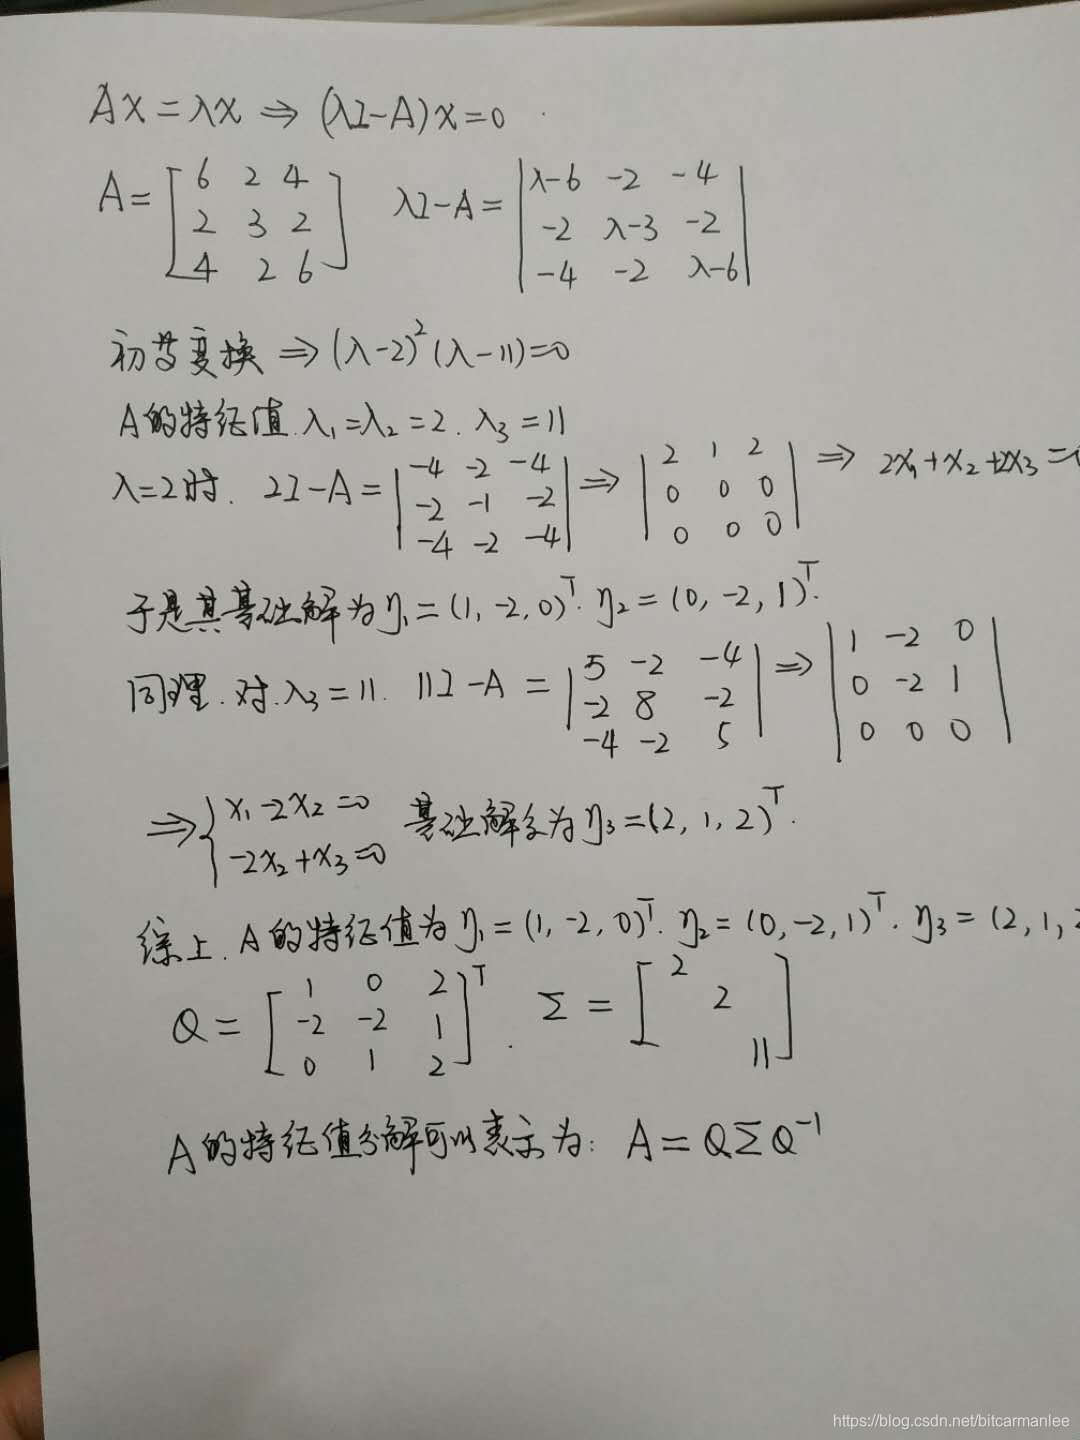 Ax = λx ⇒ (λI-A)x = 0
A = [6 2 4; 2 3 2; 4 2 6] λI-A = |λ-6 -2 -4; -2 λ-3 -2; -4 -2 λ-6|
初等变换 ⇒ (λ-2)²(λ-11)=0
A的特征值.λ₁=λ₂=2. λ₃=11
λ=2时. 2I-A = |-4 -2 -4; -2 -1 -2; -4 -2 -4| ⇒ |2 1 2; 0 0 0; 0 0 0| ⇒ 2x₁+x₂+2x₃=0
于是其基础解为η₁=(1,-2,0)ᵀ. η₂=(0,-2,1)ᵀ.
同理.对.λ₃=11. 11I-A = |5 -2 -4; -2 8 -2; -4 -2 5| ⇒ |1 -2 0; 0 -2 1; 0 0 0|
⇒ {x₁-2x₂=0; -2x₂+x₃=0 基础解系为η₃=(2,1,2)ᵀ.
综上.A的特征值为η₁=(1,-2,0)ᵀ. η₂=(0,-2,1)ᵀ. η₃=(2,1,2
Q = [1 0 2; -2 -2 1; 0 1 2]ᵀ. Σ = [2; 2; 11]
A的特征值分解可以表示为: A=QΣQ⁻¹
https://blog.csdn.net/bitcarmanlee